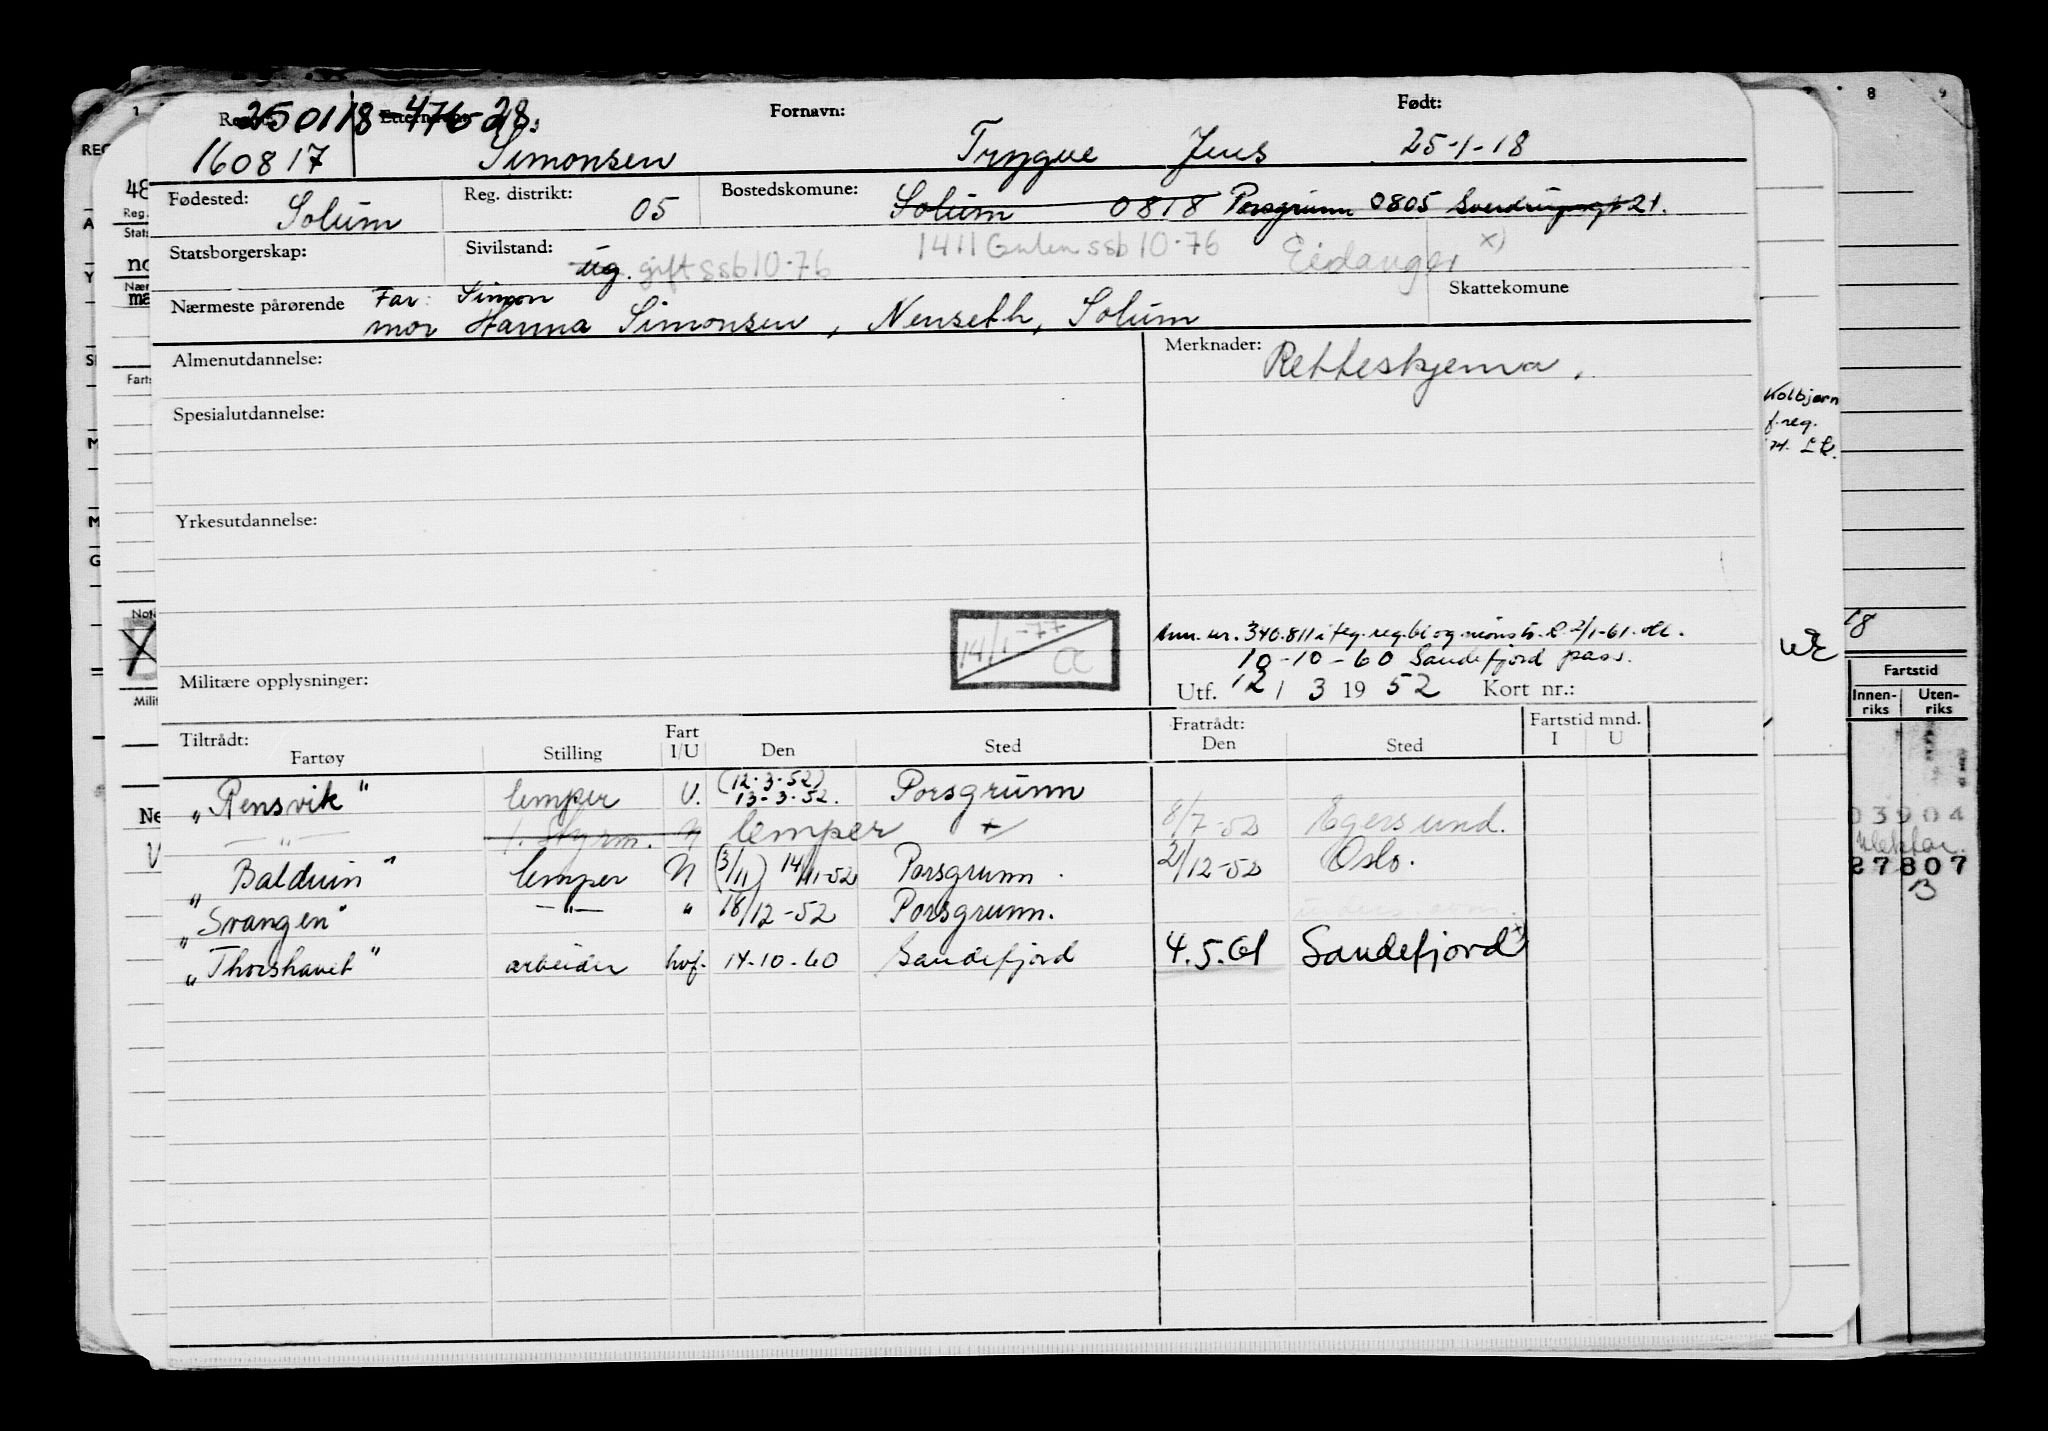 250118-476-28.
Fornavn: Født:
160817 Simonsen Trygve Jens 25-1-18
Fødested: Solum Reg. distrikt: 05 Bostedskomune: Solum 0818 Porsgrunn 0805 Sverdrupsgt 21.
Statsborgerskap: Sivilstand: ug. gift ssb 10-76 1411 Gulen ssb 10-76 Eidanger x)
Nærmeste pårørende Far: Simon Skattekomune
mor Hanna Simonsen, Nenseth, Solum
Almenutdannelse: Merknader: Retteskjema.
Spesialutdannelse:
Kolbjørn
f.reg.
Yrkesutdannelse:
14/1-77
Ann. nr. 340.811 i
10-10-60 Sandefjord pass.
Militære opplysninger: Utf. 12 / 3 1952 Kort nr.:
Tiltrådt: Fratrådt: Fartstid mnd.
Fartøy Stilling Fart I/U Den Sted Den Sted I U
"Rensvik" lemper U. (12-3-52) 13-3-52. Porsgrunn
— " — 1. Styrm. N lemper + 8/7-52 Egersund.
"Balduin" lemper N (3/11) 14/11-52 Porsgrunn. 2/12-52 Oslo.
"Svangen" — " — " 18/12-52 Porsgrunn.
"Thorshavet" arbeider hvf. 14-10-60 Sandefjord 4.5.61 Sandefjord
8 9
Fartstid
Innen-riks Uten-riks
03904
27807
B